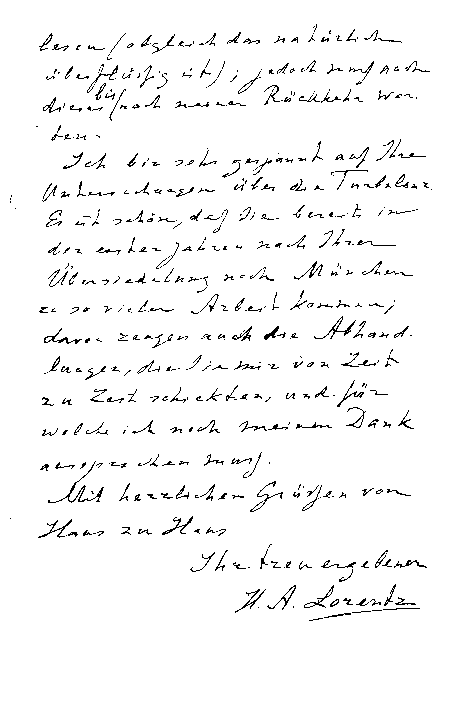 lesen (obgleich das natürlich
überflüssig ist); jedoch muß auch
dieses bis nach meiner Rückkehr war-
ten.
Ich bin sehr gespannt auf Ihre
Untersuchungen über die Turbulenz.
Es ist schön, daß Sie bereits in
den ersten Jahren nach Ihrer
Übersiedelung nach München
zu so vieler Arbeit kommen;
davon zeugen auch die Abhand-
lungen, die Sie mir von Zeit
zu Zeit schickten, und für
welche ich noch meinen Dank
aussprechen muß.
Mit herzlichen Grüßen von
Haus zu Haus
Ihr treu ergebener
H. A. Lorentz